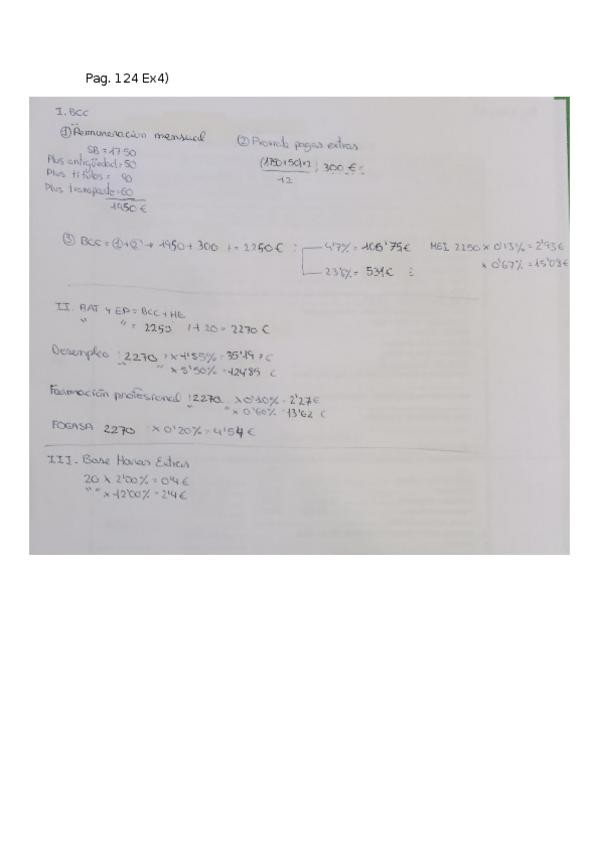 Pag. 124 Ex4)
I. BCC
① Remuneracion mensual
SB = 1750
Plus antigüedad = 50
Plus títulos = 90
Plus transporte = 60
1950 €
② Prorrata pagas extras
(1750+50)×2 : 300 € =
12
③ BCC = ①+② → 1950 + 300 = 2250 €
4'7% = 105'75€
23'6% = 531€
MEI 2250 × 0'13% = 2'93€
× 0'67% = 15'08€
II. AAT y EP = BCC + HE
" " = 2250 + 20 = 2270 €
Desempleo : 2270 × 1'55% = 35'19 €
" × 5'50% = 124'85 €
Formación profesional : 2270 × 0'10% = 2'27€
" × 0'60% = 13'62 €
FOGASA 2270 × 0'20% = 4'54 €
III. Base Horas Extras
20 × 2'00% = 0'4 €
" " × 12'00% = 2'4 €